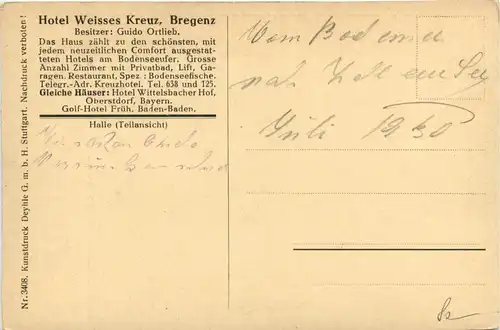 Hotel Weisses Kreuz, Bregenz
Besitzer: Guido Ortlieb.
Das Haus zählt zu den schönsten, mit
jedem neuzeitlichen Comfort ausgestat-
teten Hotels am Bodenseeufer. Grosse
Anzahl Zimmer mit Privatbad, Lift, Ga-
ragen. Restaurant, Spez.: Bodenseefische.
Telegr.-Adr. Kreuzhotel. Tel. 638 und 125.
Gleiche Häuser: Hotel Wittelsbacher Hof,
Oberstdorf, Bayern.
Golf-Hotel Früh, Baden-Baden.
Halle (Teilansicht)
Nr. 3408. Kunstdruck Deyhle G. m. b. H. Stuttgart. Nachdruck verboten!
Vom Bodensee
nach Zell am See
Juli 1930